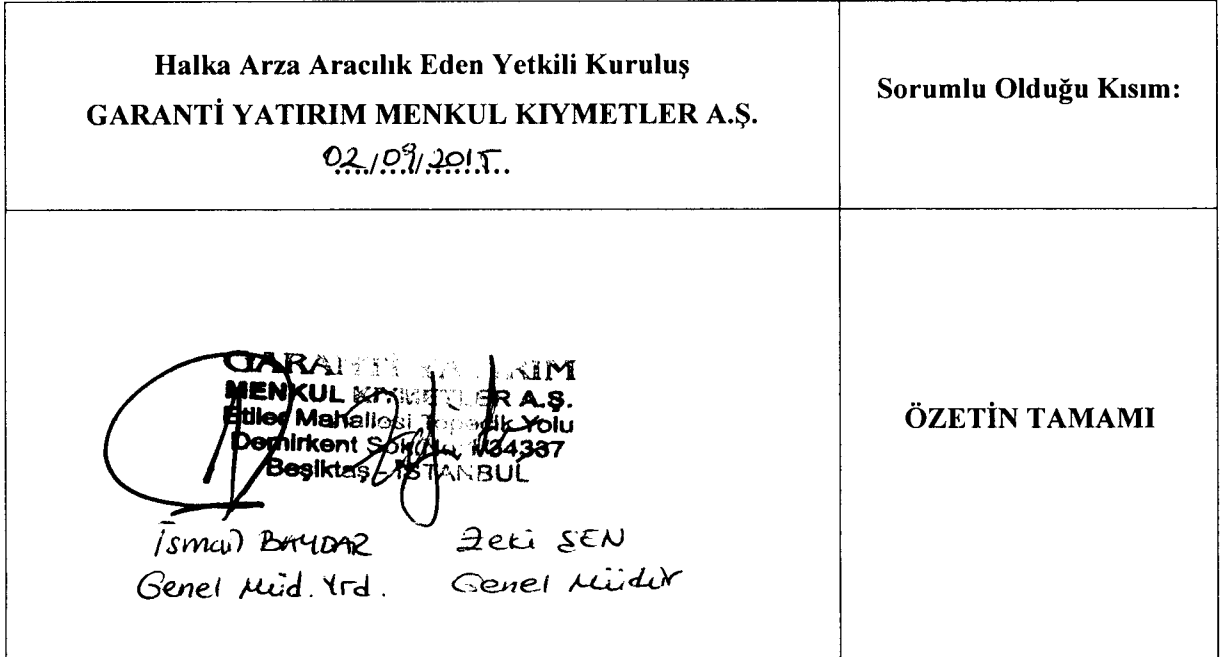 Halka Arza Aracılık Eden Yetkili Kuruluş
GARANTİ YATIRIM MENKUL KIYMETLER A.Ş.
02/09/2015
Sorumlu Olduğu Kısım:
GARANTİ YATIRIM
MENKUL KIYMETLER A.Ş.
Etiler Mahallesi Tepecik Yolu
Demirkent Sok. No:1 34337
Beşiktaş - İSTANBUL
İsmail BAYDAR Zeki ŞEN
Genel Müd. Yrd. Genel Müdür
ÖZETİN TAMAMI